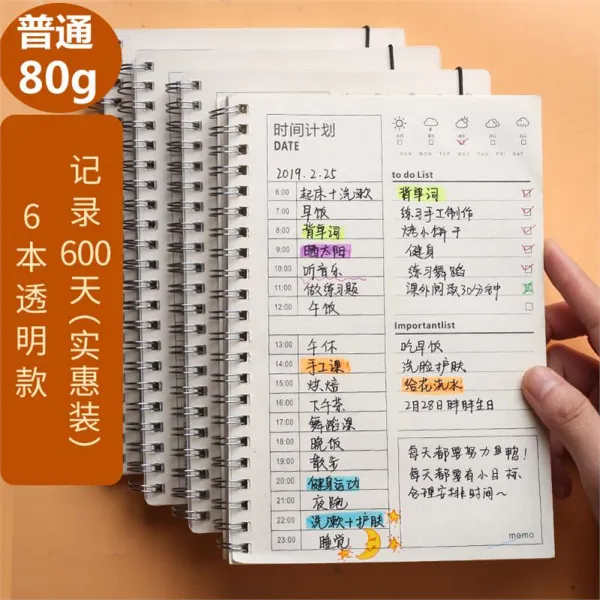 普通
80g
记录600天(实惠装)
6本透明款
时间计划
DATE
SUN MON TUE WED THU FRI SAT
2019.2.25
6:00 起床+洗漱
7:00 早饭
8:00 背单词
9:00 晒太阳
10:00 听音乐
11:00 做练习题
12:00 午饭
13:00 午休
14:00 手工课
15:00 烘焙
16:00 下午茶
17:00 舞蹈课
18:00 晚饭
19:00 散步
20:00 健身运动
21:00 夜跑
22:00 洗漱+护肤
23:00 睡觉
to do List
背单词
练习手工制作
烤小饼干
健身
练习舞蹈
课外阅读30分钟
Importantlist
吃早饭
洗脸护肤
给花浇水
2月28日胖胖生日
每天都要努力鸭!
每天都要有小目标
合理安排时间~
memo